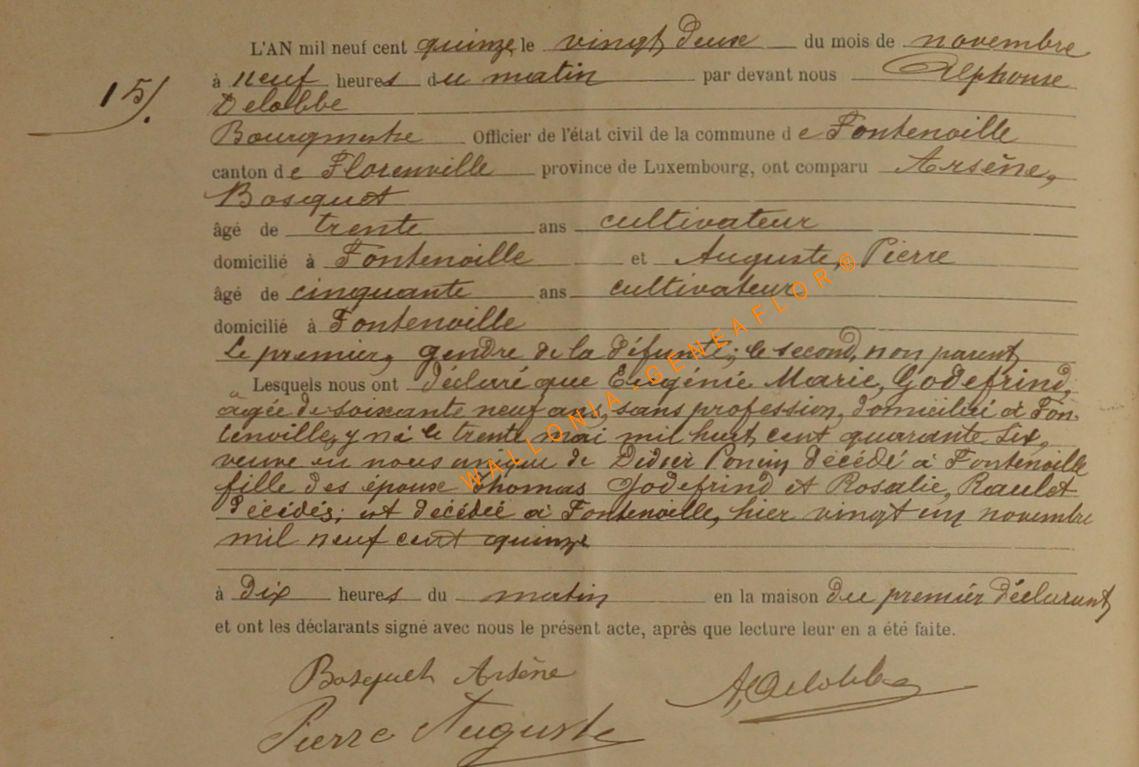 L'AN mil neuf cent quinze le vingt deux du mois de novembre
15/.
à neuf heures du matin par devant nous Alphonse
Delobbe
Bourgmestre Officier de l'état civil de la commune de Fontenoille
canton de Florenville province de Luxembourg, ont comparu Arsène,
Bosquet
âgé de trente ans cultivateur
domicilié à Fontenoille et Auguste, Pierre
âgé de cinquante ans cultivateur
domicilié à Fontenoille
Le premier, gendre de la défunte; le second, non parent
Lesquels nous ont déclaré que Eugénie Marie, Godefrind,
agée de soixante neuf ans, sans profession, domicilié à Fon-
tenville, y né le trente mai mil huit cent quarante six,
veuve en noces unique de Didier Poncin décédé à Fontenoille
fille des épouse Thomas Godefrind et Rosalie, Raulet
décédés; est décédée à Fontenoille, hier vingt un novembre
mil neuf cent quinze
à dix heures du matin en la maison du premier déclarant
et ont les déclarants signé avec nous le présent acte, après que lecture leur en a été faite.
Bosquet Arsène
A, Delobbe
Pierre Auguste
WALLONIA - GENEAFLOR ©